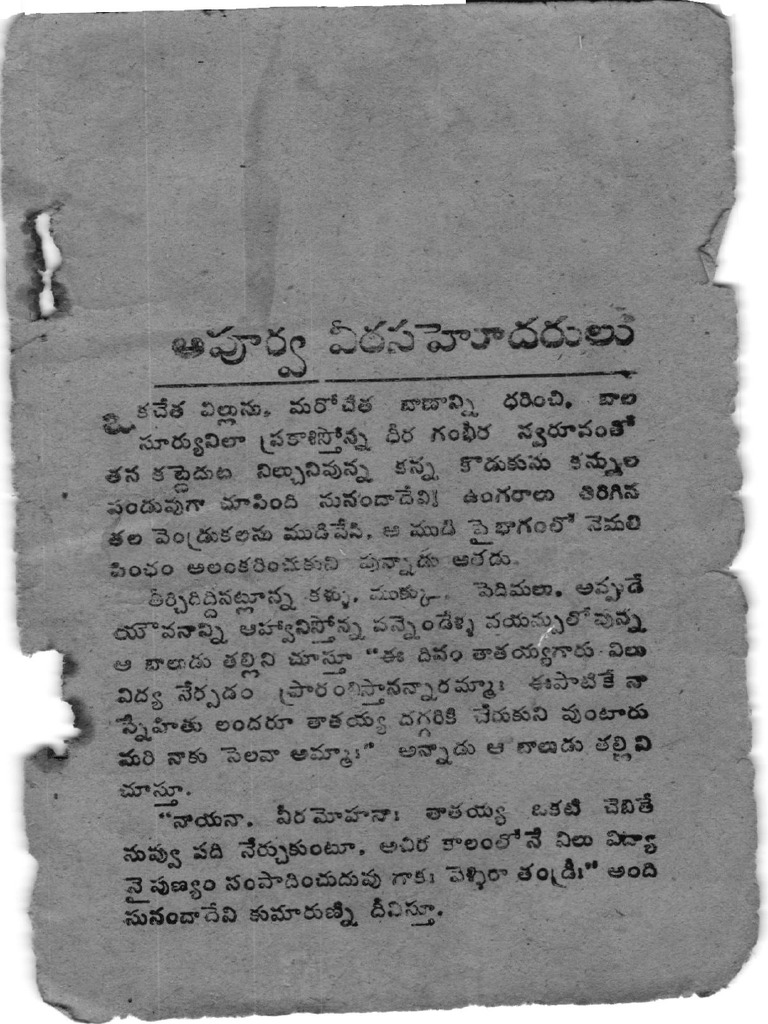 అపూర్వ వీరసహోదరులు
ఒకచేత విల్లును, మరోచేత బాణాన్ని ధరించి, బాల
సూర్యునిలా ప్రకాశిస్తోన్న ధీర గంభీర స్వరూపంతో
తన కట్టెదుట నిల్చునివున్న కన్న కొడుకును కన్నుల
పండువుగా చూపింది సునందాదేవి! ఉంగరాలు తిరిగిన
తల వెండ్రుకలను ముడివేసి, ఆ ముడి పైభాగంలో నెమలి
పింఛం అలంకరించుకుని వున్నాడు అతడు.
తీర్చిదిద్దినట్లూన్న కళ్ళు, ముక్కు, పెదిమలు, అప్పుడే
యౌవనాన్ని ఆహ్వానిస్తోన్న పన్నెండేళ్ళ వయస్సులోవున్న
ఆ బాలుడు తల్లిని చూస్తూ "ఈ దినం తాతయ్యగారు విలు
విద్య నేర్పడం ప్రారంభిస్తానన్నారమ్మా! ఈపాటికే నా
స్నేహితు లందరూ తాతయ్య దగ్గరికి చేరుకుని వుంటారు
మరి నాకు సెలవా అమ్మా!" అన్నాడు ఆ బాలుడు తల్లివి
చూస్తూ.
"నాయనా, వీరమోహనా! తాతయ్య ఒకటి చెబితే
నువ్వు పది నేర్చుకుంటూ, అచిర కాలంలోనే విలు విద్యా
నైపుణ్యం సంపాదించుదువు గాక! వెళ్ళిరా తండ్రీ!" అంది
సునందాదేవి కుమారుణ్ని దీవిస్తూ.